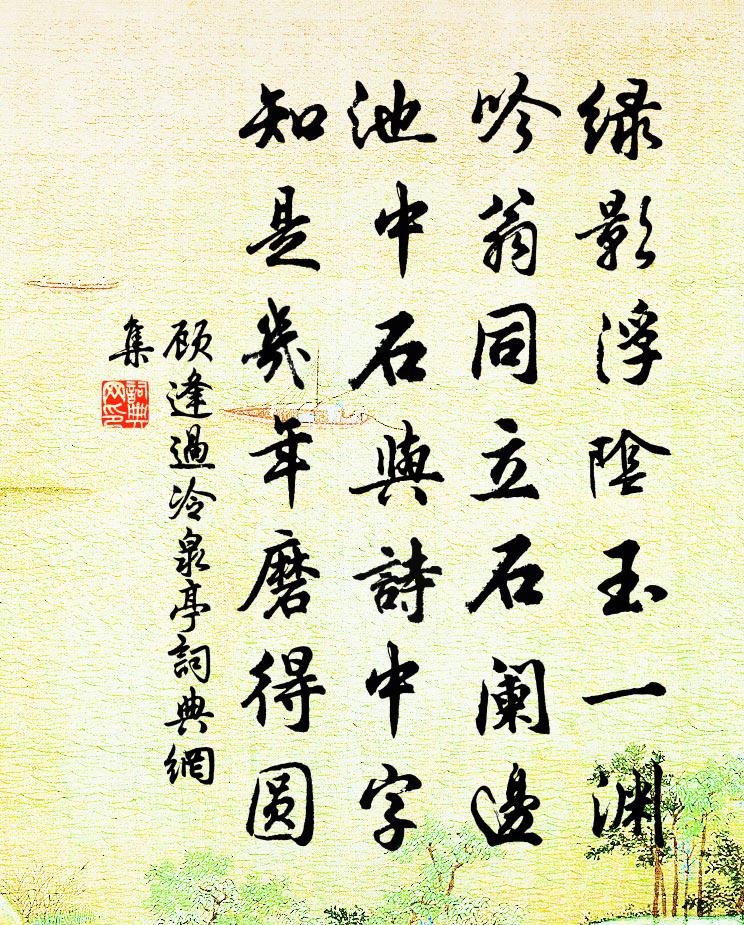 绿影浮阴玉一渊
吟翁同立石阑邊
池中石與詩中字
知是幾年磨得圆
顾逢過冷泉亭詞典網
集
詞典
网印